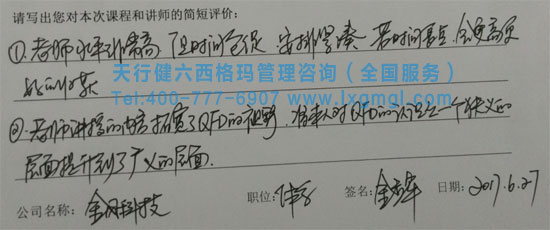 请写出您对本次课程和讲师的简短评价：
①老师水平非常高 但时间仓促，安排紧凑 若时间长点，会更高
天行健六西格玛管理咨询（全国服务）
Tel:400-777-6907 www.lxgmgl.com
②老师讲授的内容拓宽了QFD的视野，将本人对QFD的认识从一个狭义的
层面提升到了广义的层面.
公司名称： 科技 职位： 签名： 日期：2017.6.27